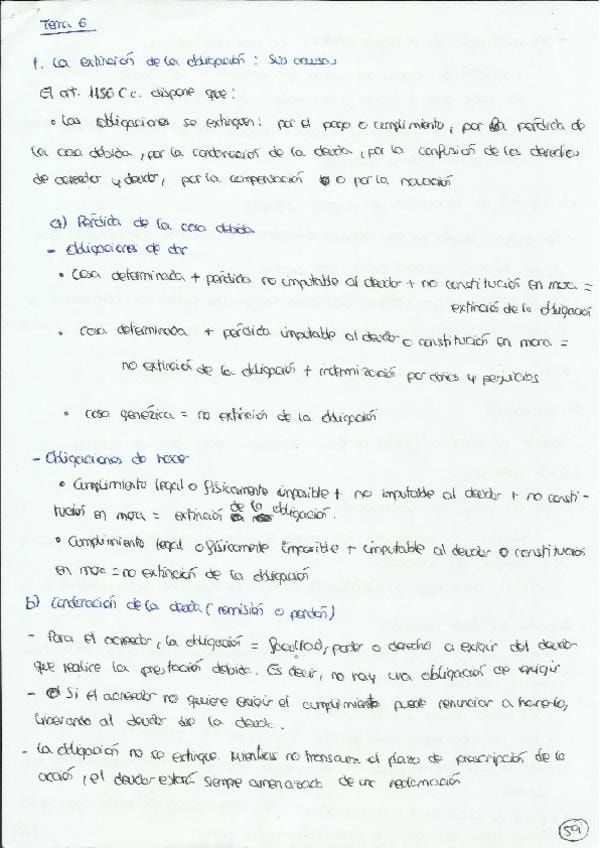 Tema 6
1. La extinción de la obligación: sus causas
El art. 1156 Cc. dispone que:
• Las obligaciones se extinguen: por el pago o cumplimiento, por la pérdida de
la cosa debida, por la condonación de la deuda, por la confusión de los derechos
de acreedor y deudor, por la compensación o por la novación
a) Pérdida de la cosa debida
- Obligaciones de dar
• Cosa determinada + pérdida no imputable al deudor + no constitución en mora =
extinción de la obligación
• cosa determinada + pérdida imputable al deudor o constitución en mora =
no extinción de la obligación + indemnización por daños y perjuicios
• cosa genérica = no extinción de la obligación
- Obligaciones de hacer
• Cumplimiento legal o físicamente imposible + no imputable al deudor + no consti-
tución en mora = extinción de la obligación.
• Cumplimiento legal o físicamente imposible + imputable al deudor o constitución
en mora = no extinción de la obligación
b) Condonación de la deuda (remisión o perdón)
- Para el acreedor, la obligación = facultad, poder o derecho a exigir del deudor
que realice la prestación debida. Es decir, no hay una obligación de exigir.
- Si el acreedor no quiere exigir el cumplimiento puede renunciar a hacerlo,
liberando al deudor de la deuda.
- La obligación no se extingue. Mientras no transcurra el plazo de prescripción de la
acción, el deudor estará siempre amenazado de una reclamación
59